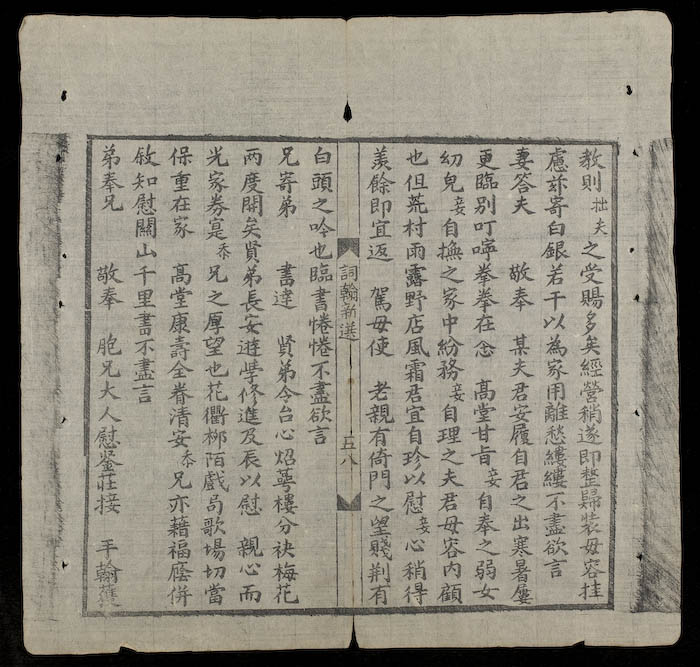 教則拙夫之受賜多矣經營稍遂即整歸裝毋容挂
慮茲寄白銀若干以為家用離愁縷縷不盡欲言
妻答夫　敬奉　某夫君安履自君之出寒暑屢
更臨別叮嚀拳拳在念　高堂甘旨妾自奉之弱女
幼兒妾自撫之家中紛務妾自理之夫君毋容內顧
也但荒村雨露野店風霜君宜自珍以慰妾心稍得
羨餘即宜返　駕毋使　老親有倚門之望賤荆有
詞翰新選　五八
白頭之吟也臨書惓惓不盡欲言
兄寄弟　書達　賢弟今台心炤萼樓分袂梅花
兩度開矣賢弟長安遊學修進及辰以慰　親心而
光家劵寔忝兄之厚望也花衢柳陌戲局歌場切當
保重在家　高堂康壽全眷清安忝兄亦藉福廕併
敘知慰關山千里書不盡言
弟奉兄　敬奉　胞兄大人慰鉴莊接　手翰蒦